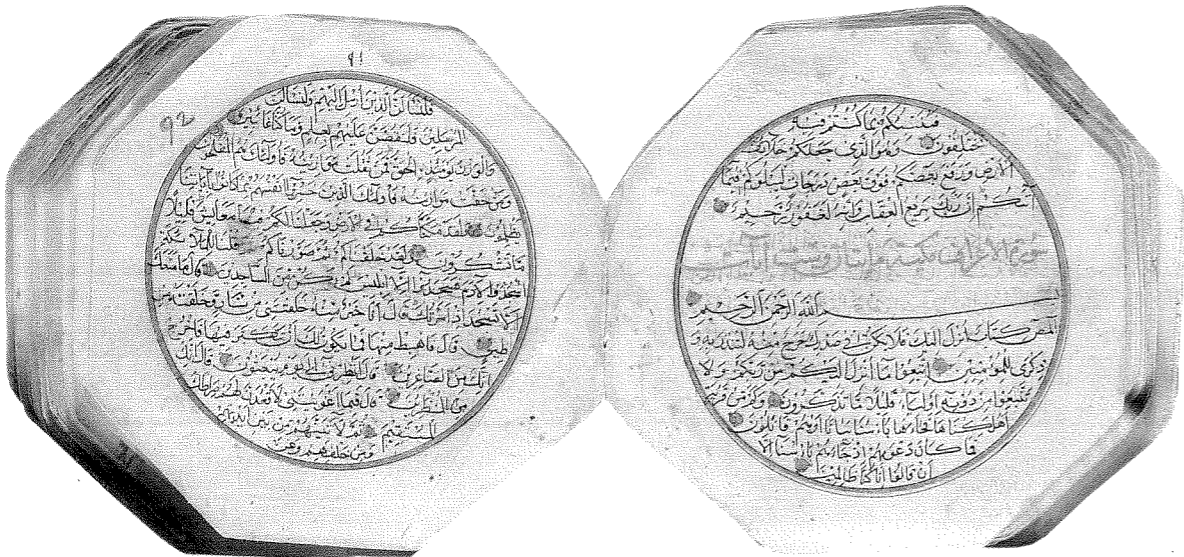 فينبئكم بما كنتم فيه
تختلفون وهو الذي جعلكم خلائف
الارض ورفع بعضكم فوق بعض درجات ليبلوكم فيما
آتيكم ان ربك سريع العقاب وانه لغفور رحيم
سورة الاعراف مكية مايتان وست آيات
بسم الله الرحمن الرحيم
المص كتاب انزل اليك فلا يكن في صدرك حرج منه لتنذر به و
ذكرى للمؤمنين اتبعوا ما انزل اليكم من ربكم ولا
تتبعوا من دونه اولياء قليلا ما تذكرون وكم من قرية
اهلكناها فجاءها بأسنا بياتا او هم قائلون
فما كان دعويهم اذ جاءهم بأسنا الا
ان قالوا انا كنا ظالمين
٩١
92
فلنسئلن الذين ارسل اليهم ولنسئلن
المرسلين فلنقصن عليهم بعلم وما كنا غائبين
والوزن يومئذ الحق فمن ثقلت موازينه فاولئك هم المفلحون
ومن خفت موازينه فاولئك الذين خسروا انفسهم بما كانوا بآياتنا
يظلمون ولقد مكناكم في الارض وجعلنا لكم فيها معايش قليلا
ما تشكرون ولقد خلقناكم ثم صورناكم ثم قلنا للملائكة
اسجدوا لآدم فسجدوا الا ابليس لم يكن من الساجدين قال ما منعك
الا تسجد اذ امرتك قال انا خير منه خلقتني من نار وخلقته من
طين قال فاهبط منها فما يكون لك ان تتكبر فيها فاخرج
انك من الصاغرين قال انظرني الى يوم يبعثون قال انك
من المنظرين قال فبما اغويتني لاقعدن لهم صراطك
المستقيم ثم لآتينهم من بين ايديهم
ومن خلفهم وعن